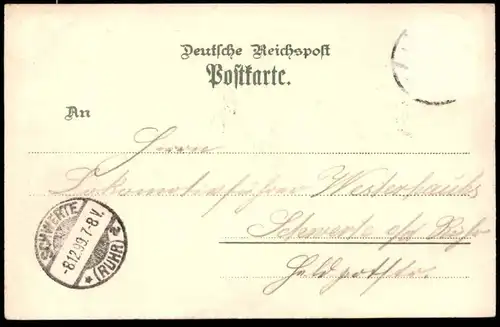 Deutsche Reichspost
Postkarte.
An
Herrn
Lokomotivführer Westerhaus
Schwerte a/d Ruhr
SCHWERTE
-8.12.99.7-8 V.
* (RUHR) a